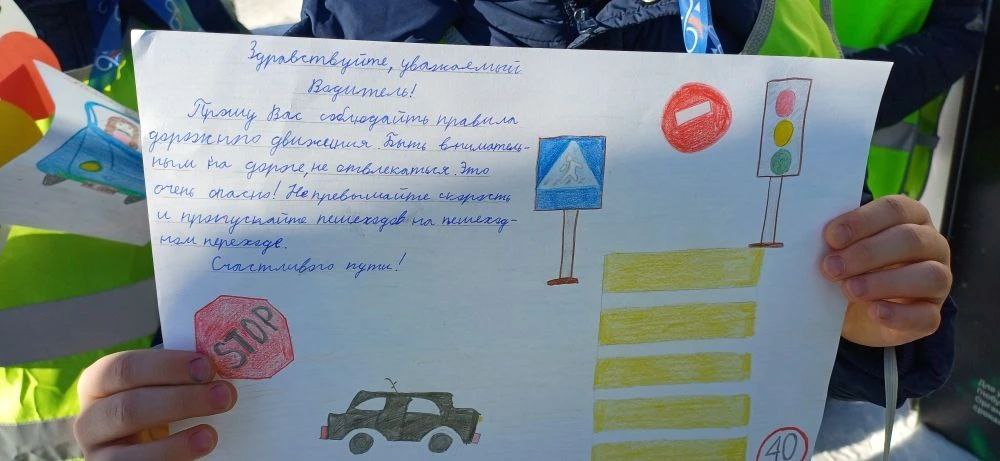 Здравствуйте, уважаемый
Водитель!
Прошу Вас соблюдайть правила
дорожного движения. Быть вниматель-
ным на дороге, не отвлекаться. Это
очень опасно! Не превышайте скорость
и пропускайте пешеходов на пешеход-
ном переходе.
Счастливого пути!
STOP
40